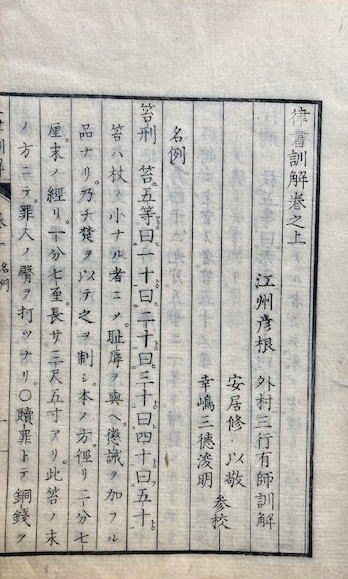 律書訓解卷之上
江州彦根 外村三行有師訓解
安居修 以敬
幸嶋三德浚明 參校
名例
笞刑 笞五等曰一十曰二十曰三十曰四十曰五十
笞ハ杖ノ小ナル者ニメ耻辱ヲ與ヘ懲誡ヲ加フル
品ナリ乃チ楚ヲ以テ之ヲ制シ本ノ方徑リ二分七
厘末ノ經リ一分七厘長サ三尺五寸アリ此笞ノ末
ノ方ニテ罪人ノ臀ヲ打ツナリ〇贖罪トテ銅錢ヲ
名例